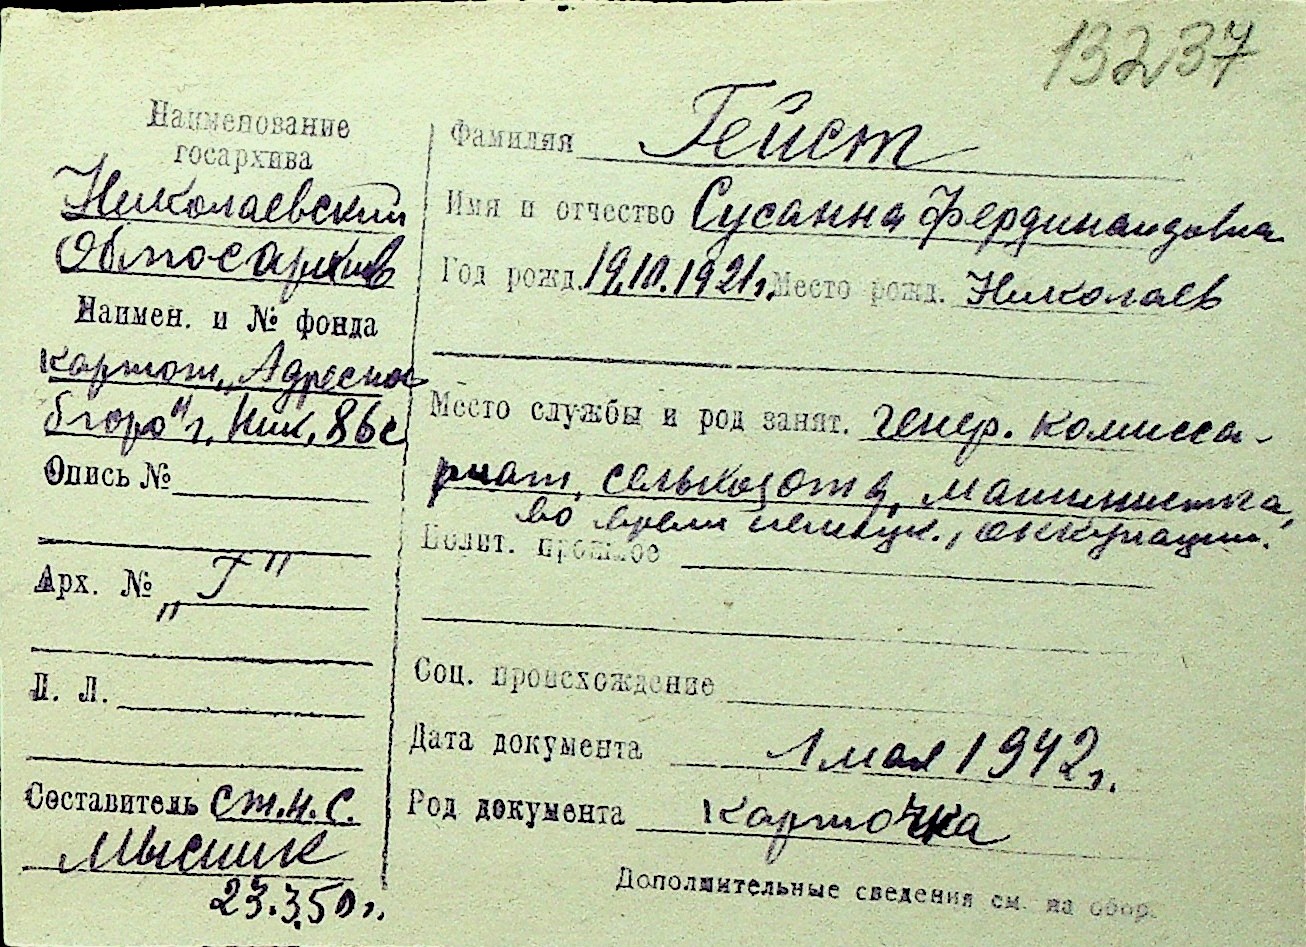 13237
Наименование
госархива
Николаевский
Облгосархив
Наимен. и № фонда
картот. „Адресное
бюро" г. Ник, 86с
Опись №
Арх. № „Г"
Л. Л.
Составитель ст.н.с.
Мысник
23.3.50 г.
Фамилия Гейст
Имя и отчество Сусанна Фердинандовна
Год рожд. 19.10.1921г. Место рожд. Николаев
Место службы и род занят. генер. комисса-
риат, сельхозотд, машинистка,
во время немецк., оккупации.
Полит. прошлое
Соц. происхождение
Дата документа 1 мая 1942 г.
Род документа карточка
Дополнительные сведения см. на обор.